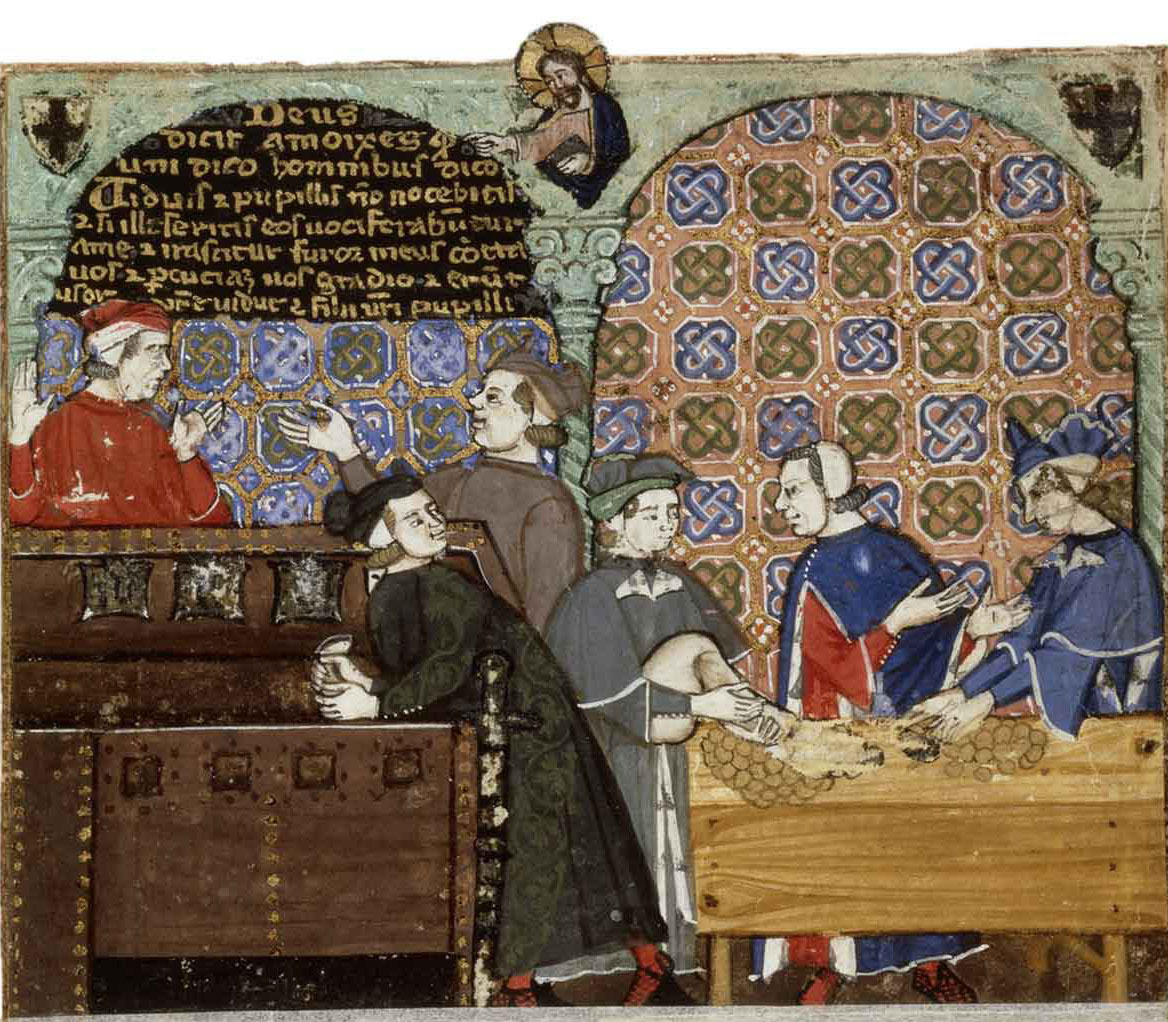 Deus
dicit amoixes q
uni dico hominibus dico
Uiduis ⁊ pupillis no nocebitis
⁊ si illeseritis eos uociferabũtur
ame ⁊ irascitur furor meus cõtra
uos ⁊ pcuciaʒ uos gladio ⁊ erũt
uidue ⁊ filii uri pupilli